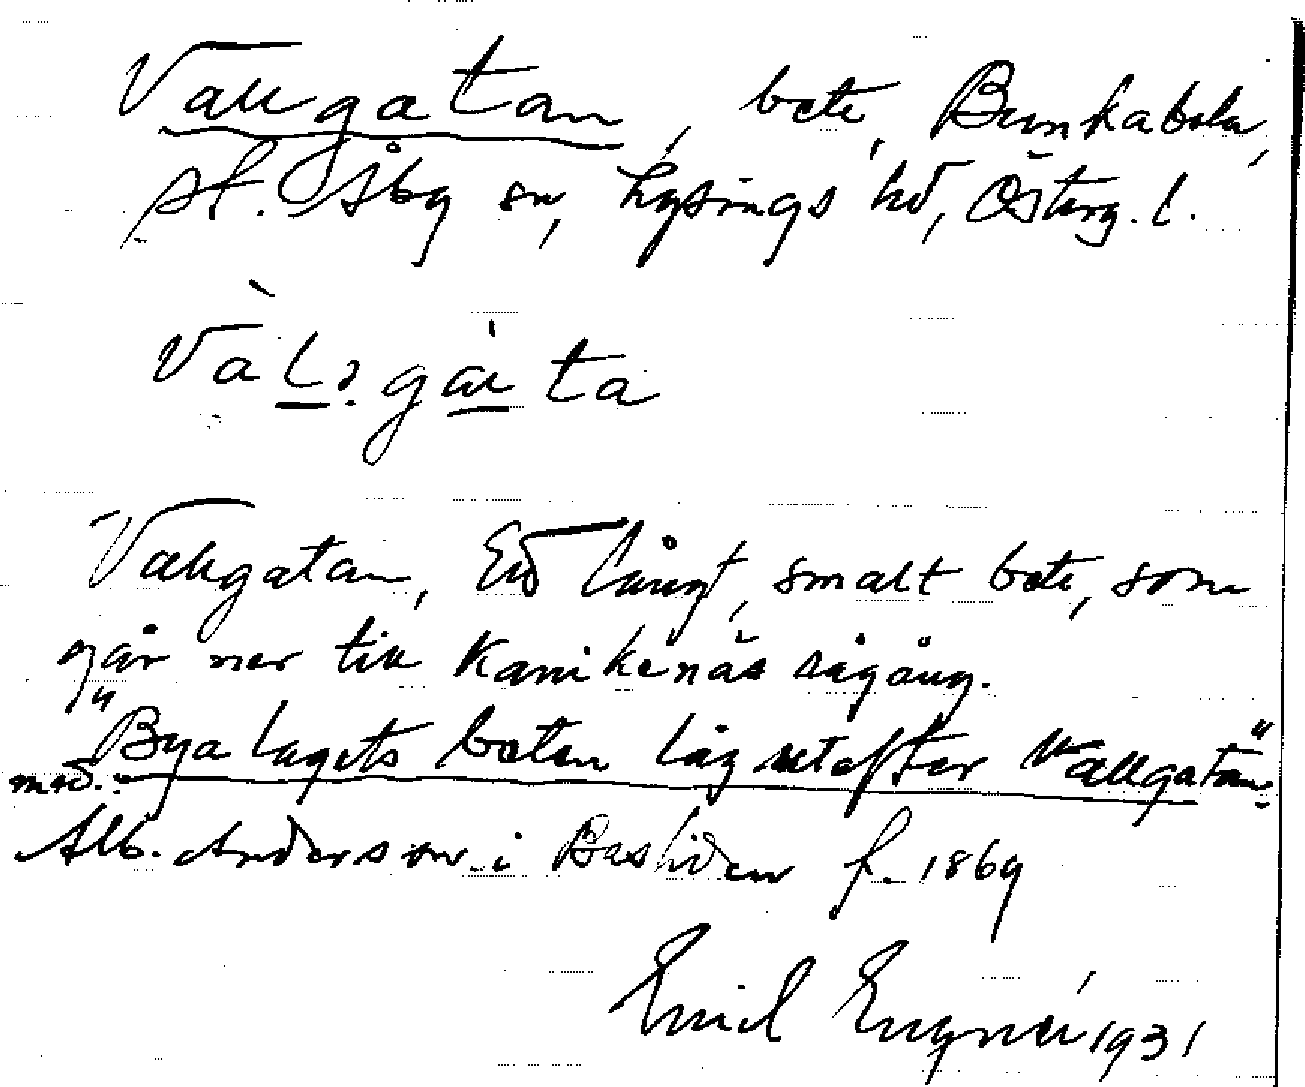 Vallgatan, bete, Bunkabola,
st. Åby sn, Lysings hd, Österg. l.
Vallgatan, Ett långt, smalt bete, som
går ner till Kanikenäs rågång.
"Byalagets beten låg utefter Vallgatan"
med.: Alb. Andersson i Basliden f. 1869
Emil Engnér 1931